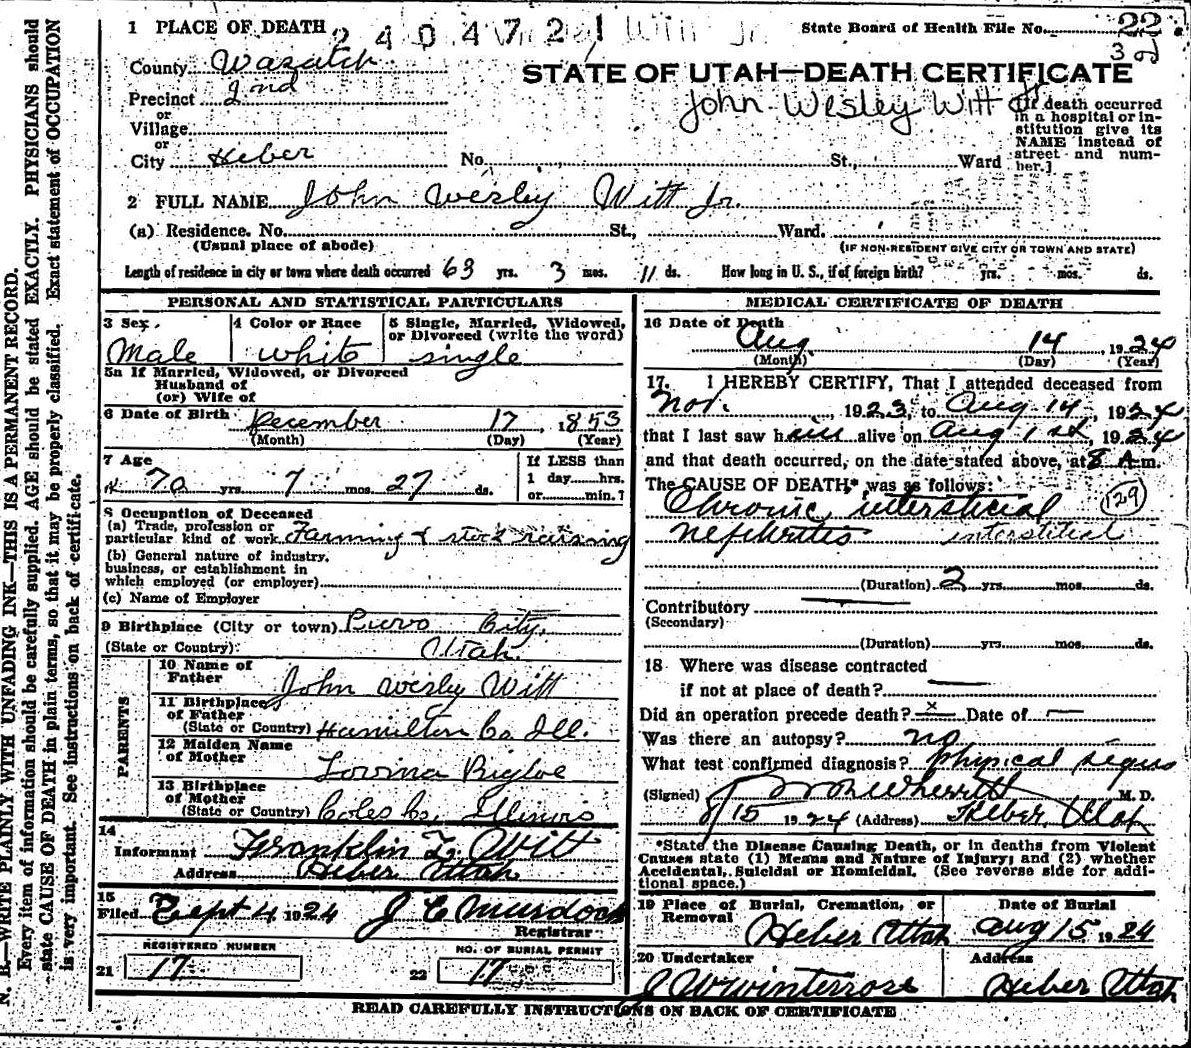 N. B.—WRITE PLAINLY WITH UNFADING INK—THIS IS A PERMANENT RECORD.
Every item of information should be carefully supplied. AGE should be stated EXACTLY. PHYSICIANS should
state CAUSE OF DEATH in plain terms, so that it may be properly classified. Exact statement of OCCUPATION
is very important. See instructions on back of certificate.
1 PLACE OF DEATH
2404721
State Board of Health File No. 22
32
County Wasatch
STATE OF UTAH—DEATH CERTIFICATE
Precinct 2nd
John Wesley Witt Jr
or
Village
or
City Heber No. St., Ward
[If death occurred
in a hospital or in-
stitution give its
NAME instead of
street and num-
ber.]
2 FULL NAME John Wesley Witt Jr.
(a) Residence. No. St., Ward.
(Usual place of abode) (IF NON-RESIDENT GIVE CITY OR TOWN AND STATE)
Length of residence in city or town where death occurred 63 yrs. 3 mos. 11 ds. How long in U. S., if of foreign birth? yrs. mos. ds.
PERSONAL AND STATISTICAL PARTICULARS
3 Sex. 4 Color or Race 5 Single, Married, Widowed,
or Divorced (write the word)
Male white single
5a If Married, Widowed, or Divorced
Husband of
(or) Wife of
6 Date of Birth December 17, 1853
(Month) (Day) (Year)
7 Age If LESS than
1 day hrs.
or min.?
70 yrs. 7 mos. 27 ds.
8 Occupation of Deceased
(a) Trade, profession or
particular kind of work Farming & stock raising
(b) General nature of industry,
business, or establishment in
which employed (or employer)
(c) Name of Employer
9 Birthplace (City or town) Provo City,
(State or Country) Utah.
PARENTS
10 Name of
Father John Wesley Witt
11 Birthplace
of Father
(State or Country) Hamilton Co Ill.
12 Maiden Name
of Mother Lovina Bigloe
13 Birthplace
of Mother
(State or Country) Coles Co, Illinois
14
Informant Franklin L. Witt
Address Heber Utah
15
Filed Sept 4 1924 J C Murdock
Registrar
REGISTERED NUMBER NO. OF BURIAL PERMIT
21 17 22 17
MEDICAL CERTIFICATE OF DEATH
16 Date of Death
Aug 14, 1924
(Month) (Day) (Year)
17. I HEREBY CERTIFY, That I attended deceased from
Nov., 1923, to Aug 14, 1924
that I last saw him alive on Aug 1st, 1924
and that death occurred, on the date stated above, at 8 A.m.
The CAUSE OF DEATH* was as follows:
Chronic intersticial 129
interstitial
(Duration) 2 yrs. mos. ds.
Contributory
(Secondary)
(Duration) yrs. mos. ds.
18 Where was disease contracted
if not at place of death?
Did an operation precede death? x Date of —
Was there an autopsy? no
What test confirmed diagnosis? physical signs
(Signed) M. D.
8/15 1924 (Address) Heber, Utah
*State the Disease Causing Death, or in deaths from Violent
Causes state (1) Means and Nature of Injury; and (2) whether
Accidental, Suicidal or Homicidal. (See reverse side for addi-
tional space.)
19 Place of Burial, Cremation, or Date of Burial
Removal
Heber Utah Aug 15 1924
20 Undertaker Address
J W Winterrose Heber Utah
READ CAREFULLY INSTRUCTIONS ON BACK OF CERTIFICATE